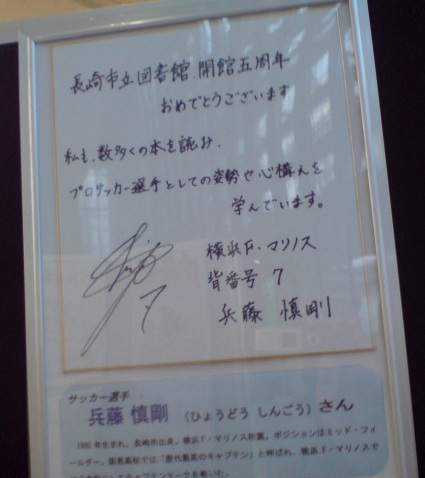 長崎市立図書館、開館五周年
おめでとうございます
私も、数多くの本を読み、
プロサッカー選手としての姿勢や心構えを
学んでいます。
横浜F・マリノス
背番号 7
兵藤 慎剛
7
サッカー選手
兵藤 慎剛 (ひょうどう しんごう) さん
1985年生まれ。長崎市出身。横浜F・マリノス所属。ポジションはミッド・フィ
ールダー。国見高校では「歴代最高のキャプテン」と呼ばれ、横浜F・マリノスで
キャプテンマークを巻いた。